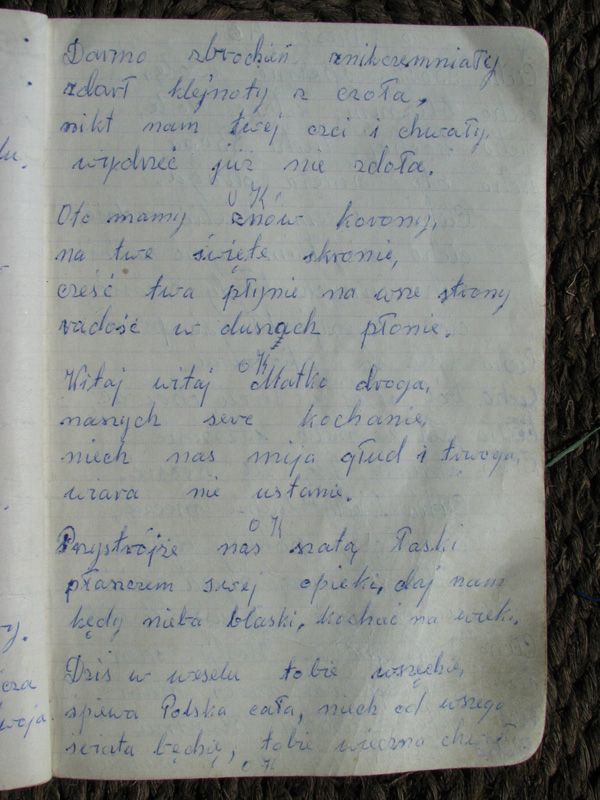 Darmo zbrodzień znikczemniały
zdarł klejnoty z czoła,
nikt nam twej czci i chwały
wydrzeć już nie zdoła.
O K
Oto mamy znów korony,
na twe święte skronie,
cześć twa płynie na wsze strony
radość w duszach płonie.
O K
Witaj witaj Matko droga,
naszych serc kochanie,
niech nas mija głud i trwoga,
wiara nie ustanie.
O K
Przystrójże nas szatą łaski
płaszczem swej opieki, daj nam
kędy nieba blaski, kochać na wieki.
Dziś w weselu tobie wszędzie,
śpiewa Polska cała, niech od wszego
świata będzie, tobie wieczna chwała
O K
lu.
ry.
cza
woja